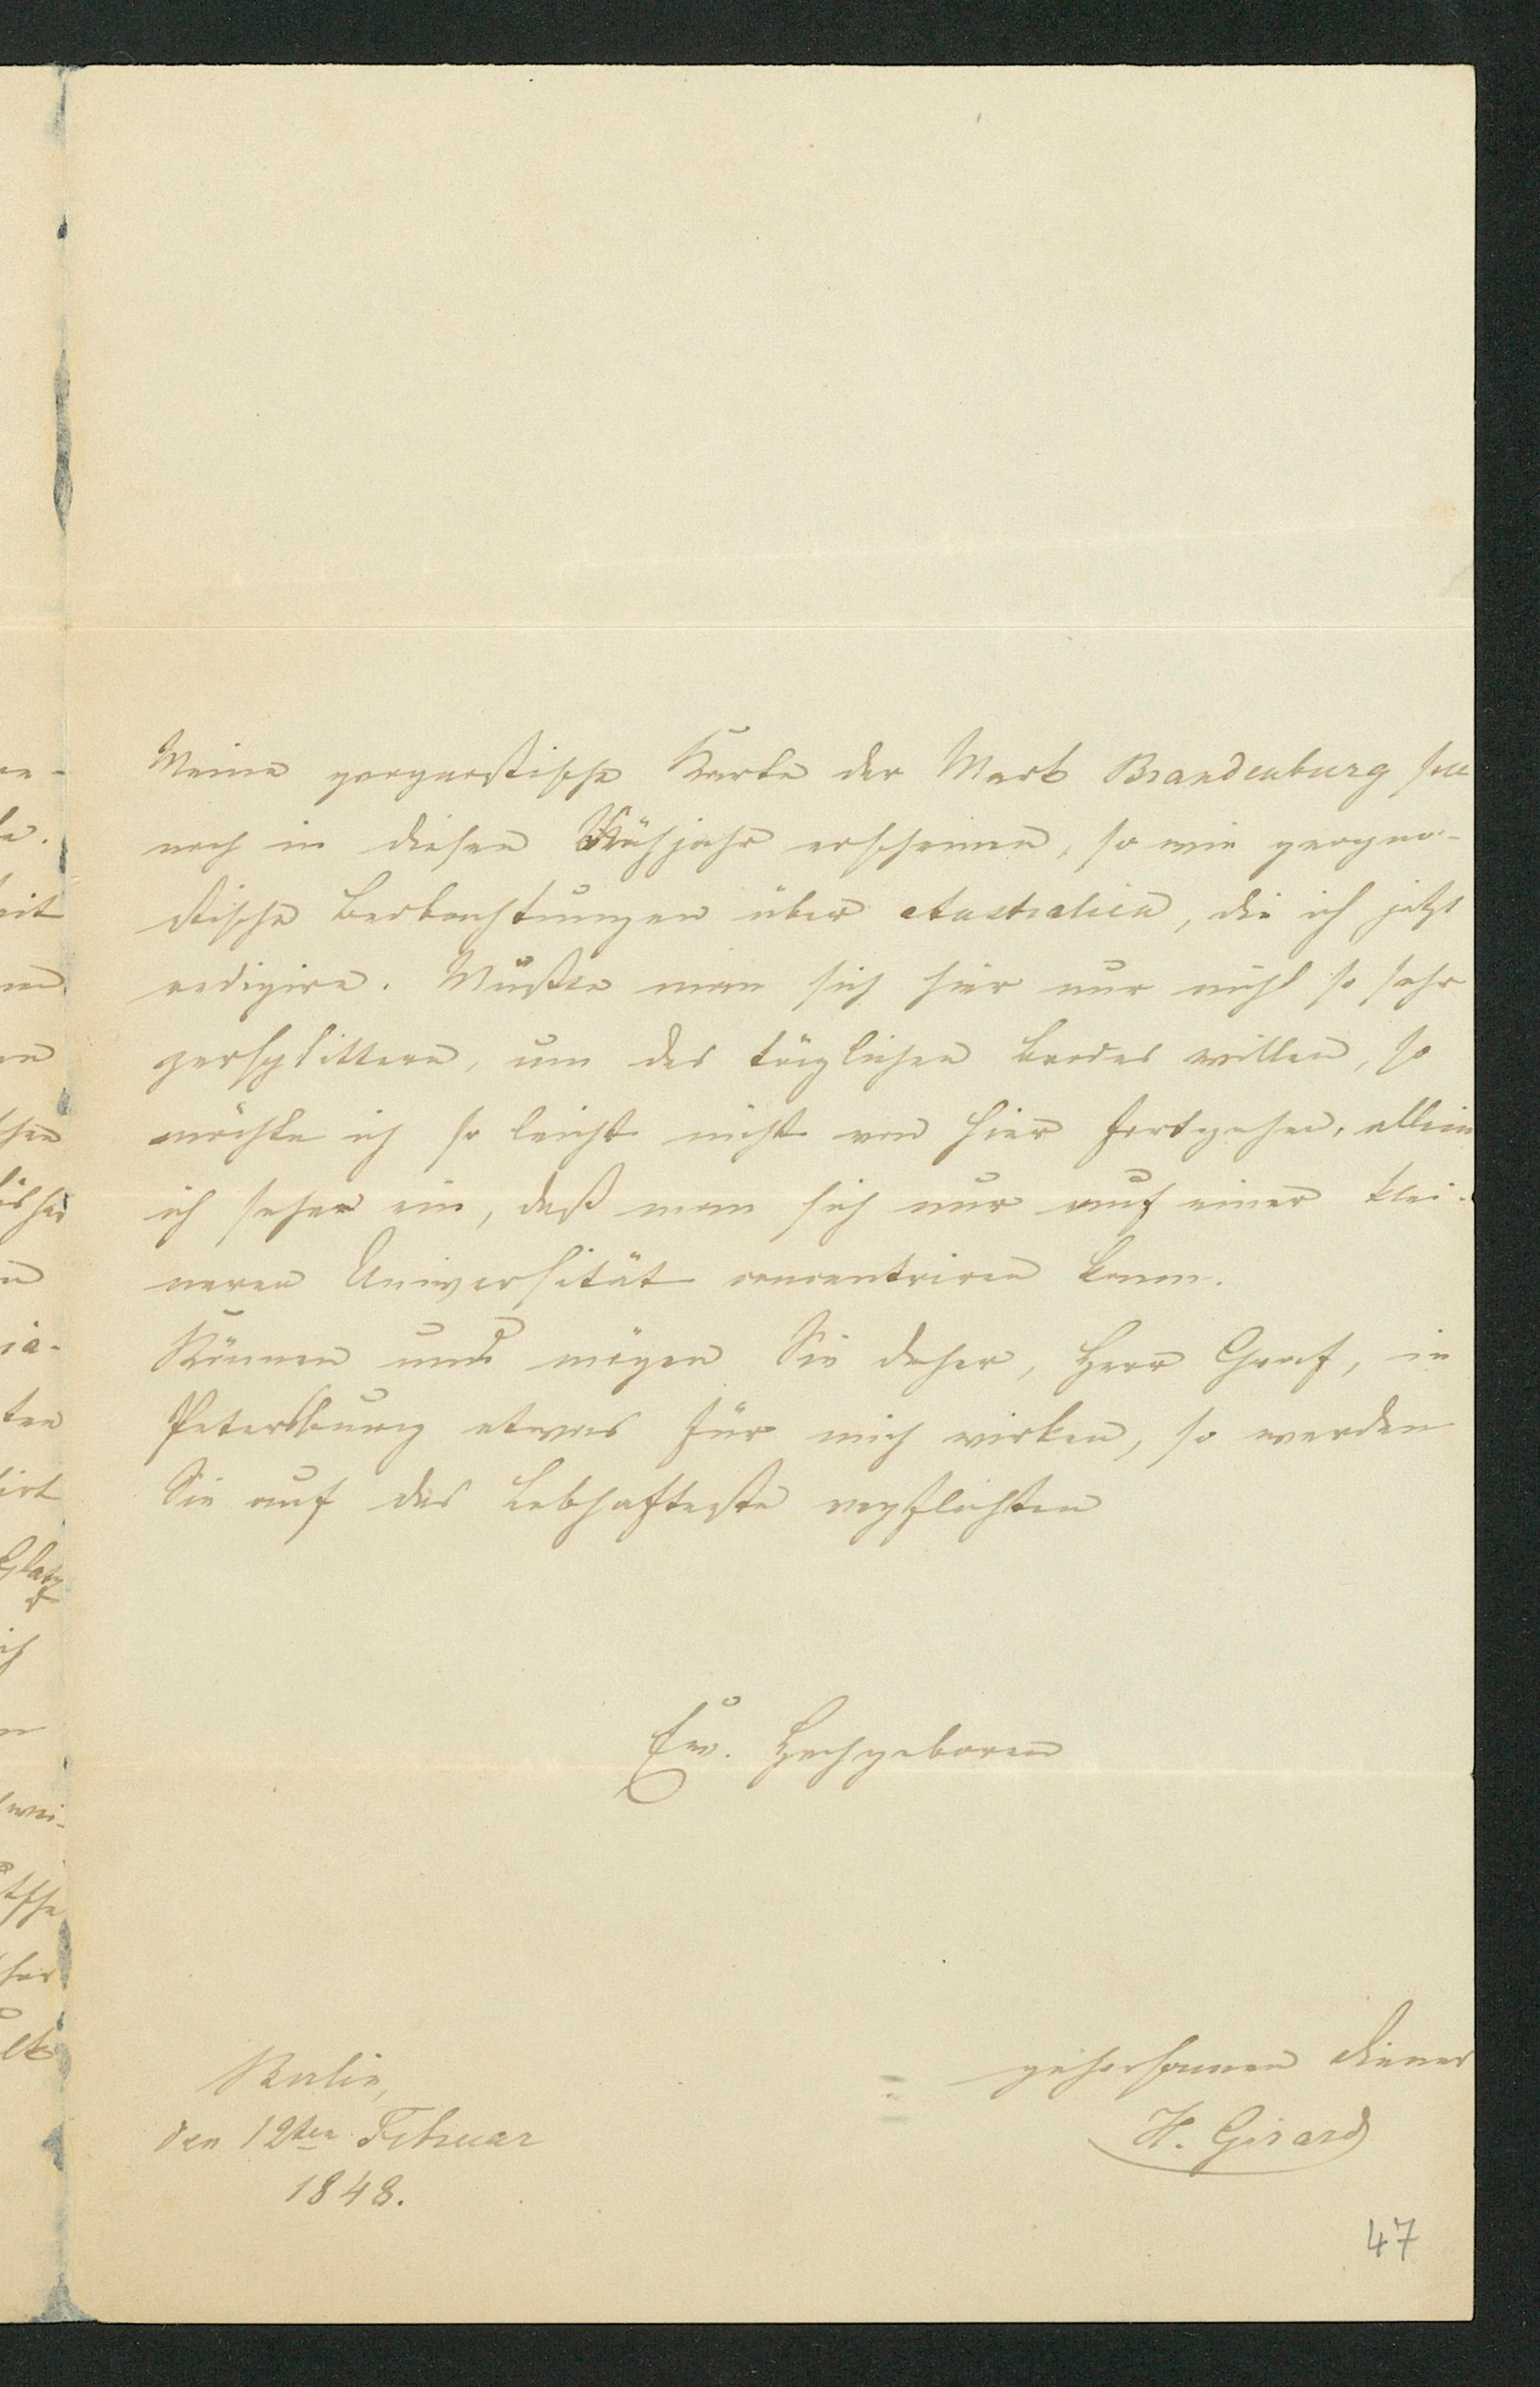 Meine geognostische Karte der Mark Brandenburg soll
noch in diesen Frühjahr erscheinen, so wie geogno-
stische Beobachtungen über Australien, die ich jetzt
redigire. Müßte man sich hier nur nicht so sehr
zersplittern, um des täglichen Brodes willen, so
möchte ich so leicht nicht von hier fortgehen, allein
ich sehe ein, daß man sich nur auf einer klei-
neren Universität concentriren kann.
Können und mögen Sie daher, Herr Graf, in
Petersburg etwas für mich wirken, so werden
Sie auf das Lebhafteste verpflichten
Ew. Hochgeboren
gehorsamen Diener
H. Girard
Berlin,
den 12ten Februar
1848.
47